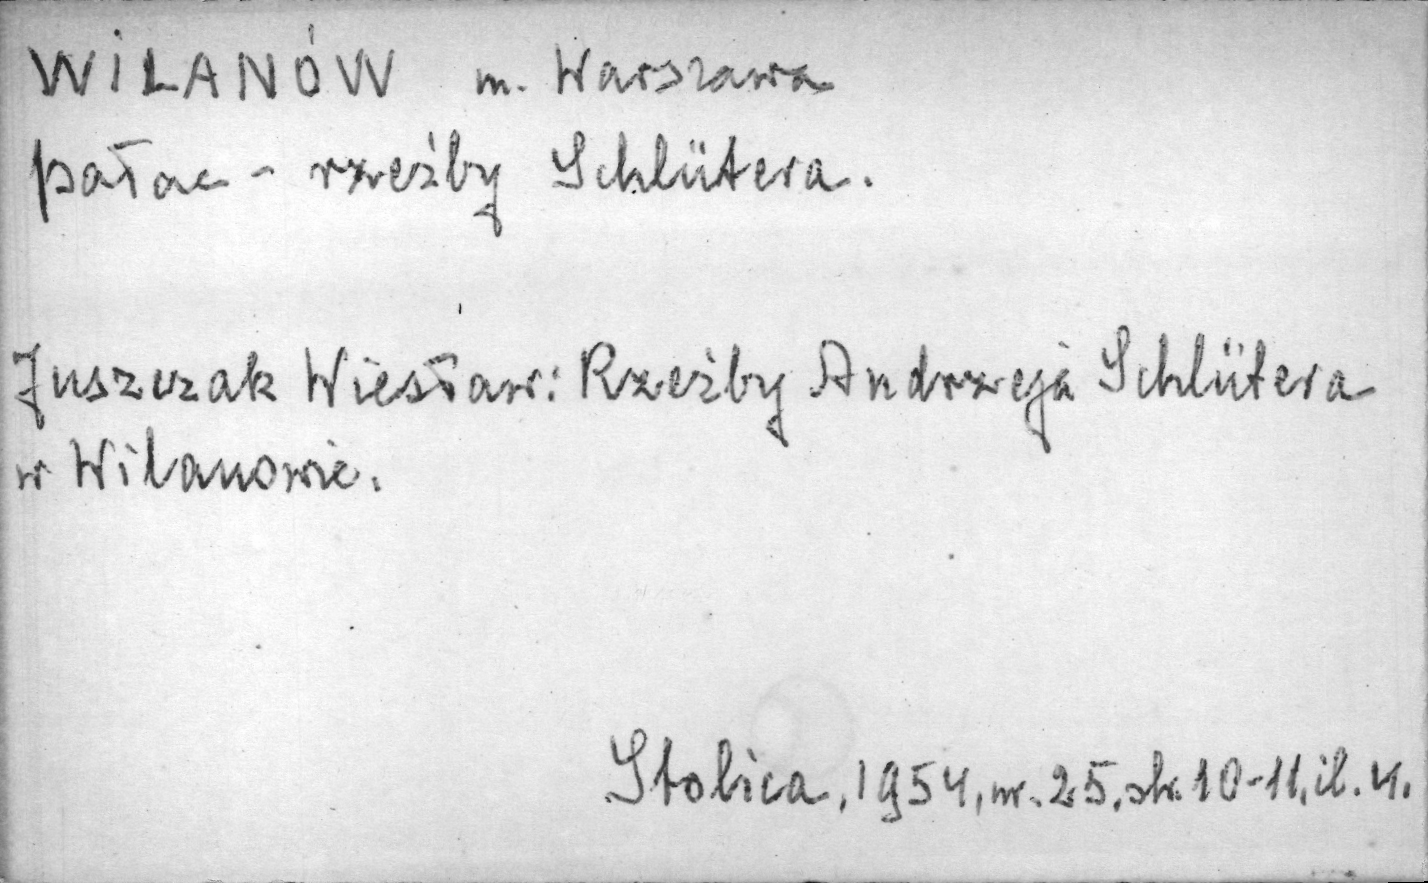 WILANÓW m. Warszawa
pałac - rzeźby Schlütera.
Juszczak Wiesław: Rzeźby Andrzeja Schlütera
w Wilanowie.
Stolica, 1954, nr. 25, str. 10-11, il. 4.